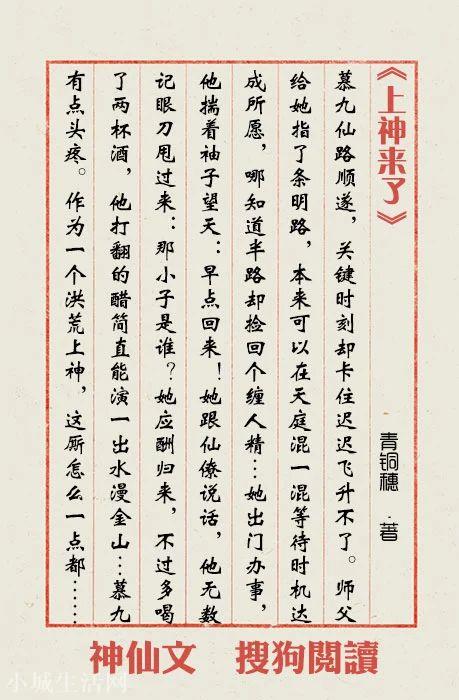 《上神来了》
青铜穗·著
慕九仙路顺遂，关键时刻却卡住迟迟飞升不了。师父
给她指了条明路，本来可以在天庭混一混等待时机达
成所愿，哪知道半路却捡回个缠人精…她出门办事，
他揣着袖子望天：早点回来！她跟仙僚说话，他无数
记眼刀甩过来：那小子是谁？她应酬归来，不过多喝
了两杯酒，他打翻的醋简直能演一出水漫金山…慕九
有点头疼。作为一个洪荒上神，这厮怎么一点都……
神仙文 搜狗閱讀
小城生活网